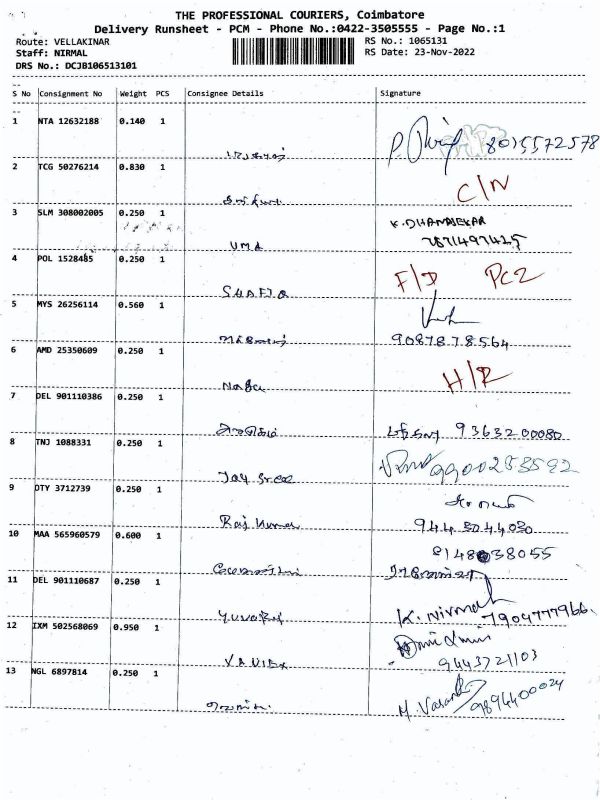 THE PROFESSIONAL COURIERS, Coimbatore
Delivery Runsheet - PCM - Phone No.:0422-3505555 - Page No.:1
Route: VELLAKINAR
RS No.: 1065131
Staff: NIRMAL
RS Date: 23-Nov-2022
DRS No.: DCJB106513101
S No Consignment No Weight PCS Consignee Details Signature
1 NTA 12632188 0.140 1
8015572578
2 TCG 50276214 0.830 1
C/N
3 SLM 308002005 0.250 1
K. DHANASEKAR
UMA 7871497415
4 POL 1528485 0.250 1
F/D PCZ
SHAFIQ
5 MYS 26256114 0.560 1
9087878564
6 AMD 25350609 0.250 1
H/R
7 DEL 901110386 0.250 1
9363200080
8 TNJ 1088331 0.250 1
Jay Sree 9900253592
9 DTY 3712739 0.250 1
Raj Kumar 944 304 4030
10 MAA 565960579 0.600 1
8148038055
11 DEL 901110687 0.250 1
K. Nirmal
Yuvaraj 7904777966
12 IXM 502568069 0.950 1
9443721103
13 NGL 6897814 0.250 1
M. Vasanth 9894400024